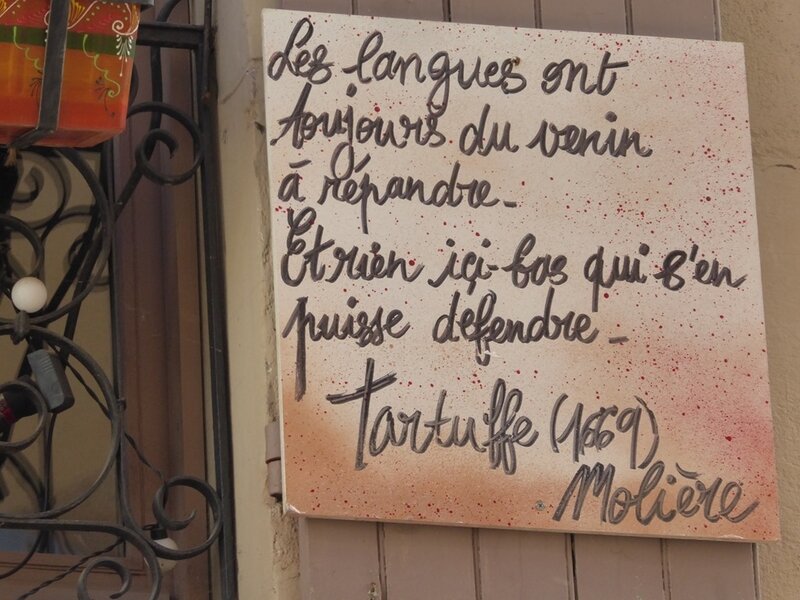 Les langues ont
toujours du venin
à répandre_
Et rien içi-bas qui s'en
puisse défendre_
Tartuffe (1669)
Molière